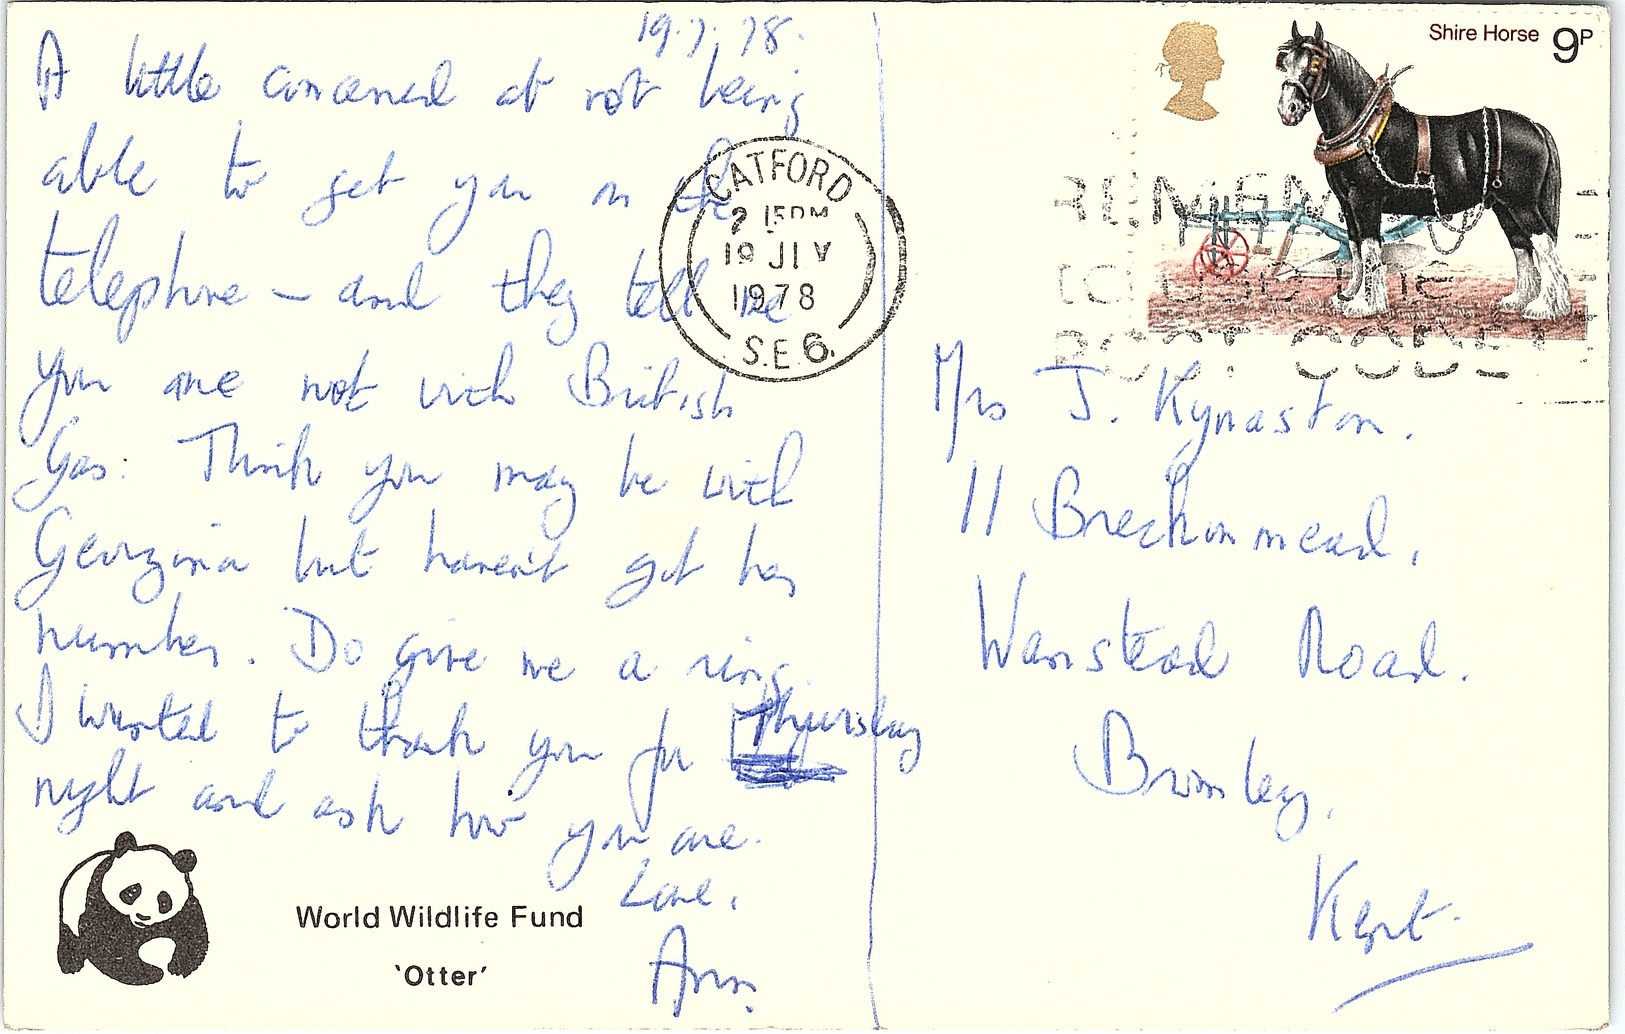 19.7.78.
A little concerned at not being
able to get you on the
telephone – and they tell me
you are not with British
Gas. Think you may be with
Georgina but haven't got her
number. Do give me a ring.
I wanted to thank you for Thursday
night and ask how you are.
Love,
Ann.
World Wildlife Fund
'Otter'
CATFORD
2 15PM
19 JLY
1978
S.E.6.
Shire Horse 9P
REMEMBER
TO USE THE
POST CODE
Mrs J. Kynaston.
11 Brechonmead,
Wanstead Road.
Bromley,
Kent.